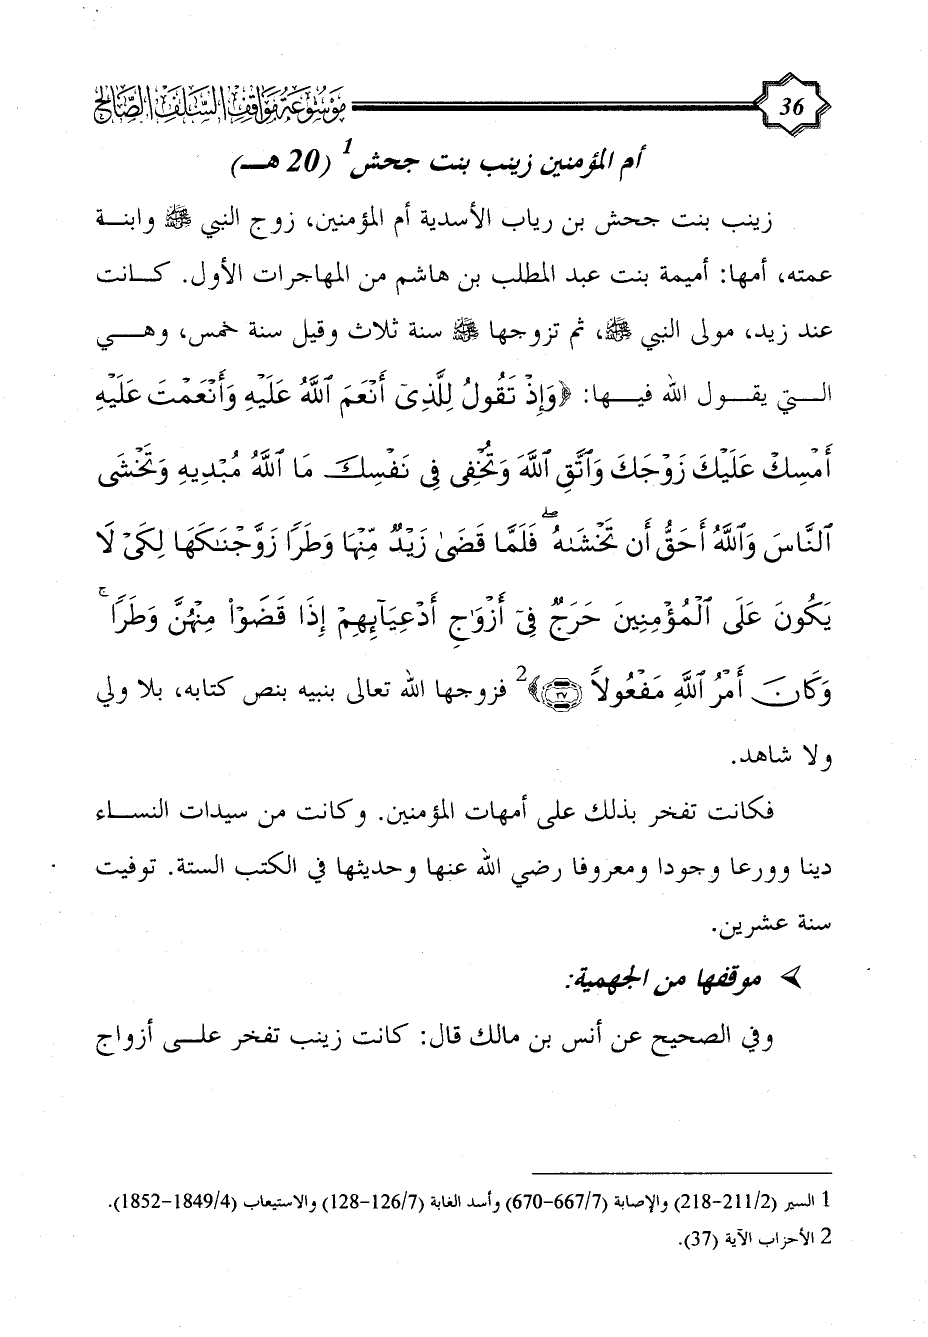 موسوعة مواقف السلف الصالح 36
أم المؤمنين زينب بنت جحش1 (20 هـ)
زينب بنت جحش بن رياب الأسدية أم المؤمنين، زوج النبي ﷺ وابنة
عمته، أمها: أميمة بنت عبد المطلب بن هاشم من المهاجرات الأول. كانت
عند زيد، مولى النبي ﷺ، ثم تزوجها ﷺ سنة ثلاث وقيل سنة خمس، وهي
التي يقول الله فيها: ﴿وَإِذْ تَقُولُ لِلَّذِىٓ أَنْعَمَ ٱللَّهُ عَلَيْهِ وَأَنْعَمْتَ عَلَيْهِ
أَمْسِكْ عَلَيْكَ زَوْجَكَ وَٱتَّقِ ٱللَّهَ وَتُخْفِى فِى نَفْسِكَ مَا ٱللَّهُ مُبْدِيهِ وَتَخْشَى
ٱلنَّاسَ وَٱللَّهُ أَحَقُّ أَن تَخْشَىٰهُ ۖ فَلَمَّا قَضَىٰ زَيْدٌ مِّنْهَا وَطَرًا زَوَّجْنَٰكَهَا لِكَىْ لَا
يَكُونَ عَلَى ٱلْمُؤْمِنِينَ حَرَجٌ فِىٓ أَزْوَٰجِ أَدْعِيَآئِهِمْ إِذَا قَضَوْا۟ مِنْهُنَّ وَطَرًا ۚ
وَكَانَ أَمْرُ ٱللَّهِ مَفْعُولًا ٣٧﴾2 فزوجها الله تعالى بنبيه بنص كتابه، بلا ولي
ولا شاهد.
فكانت تفخر بذلك على أمهات المؤمنين. وكانت من سيدات النساء
دينا وورعا وجودا ومعروفا رضي الله عنها وحديثها في الكتب الستة. توفيت
سنة عشرين.
➢ موقفها من الجهمية:
وفي الصحيح عن أنس بن مالك قال: كانت زينب تفخر على أزواج
1 السير (211/2-218) والإصابة (667/7-670) وأسد الغابة (126/7-128) والاستيعاب (1849/4-1852).
2 الأحزاب الآية (37).